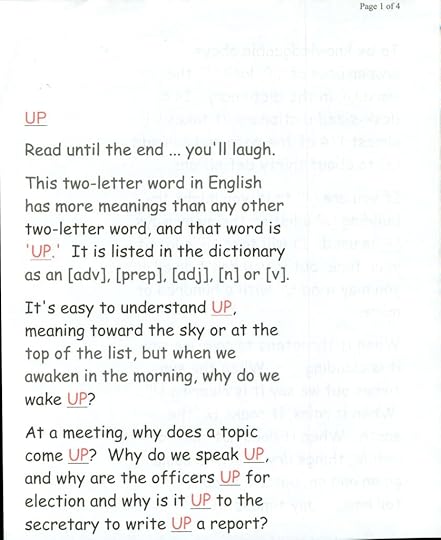 Page 1 of 4
UP
Read until the end ... you'll laugh.
This two-letter word in English
has more meanings than any other
two-letter word, and that word is
'UP.' It is listed in the dictionary
as an [adv], [prep], [adj], [n] or [v].
It's easy to understand UP,
meaning toward the sky or at the
top of the list, but when we
awaken in the morning, why do we
wake UP?
At a meeting, why does a topic
come UP? Why do we speak UP,
and why are the officers UP for
election and why is it UP to the
secretary to write UP a report?